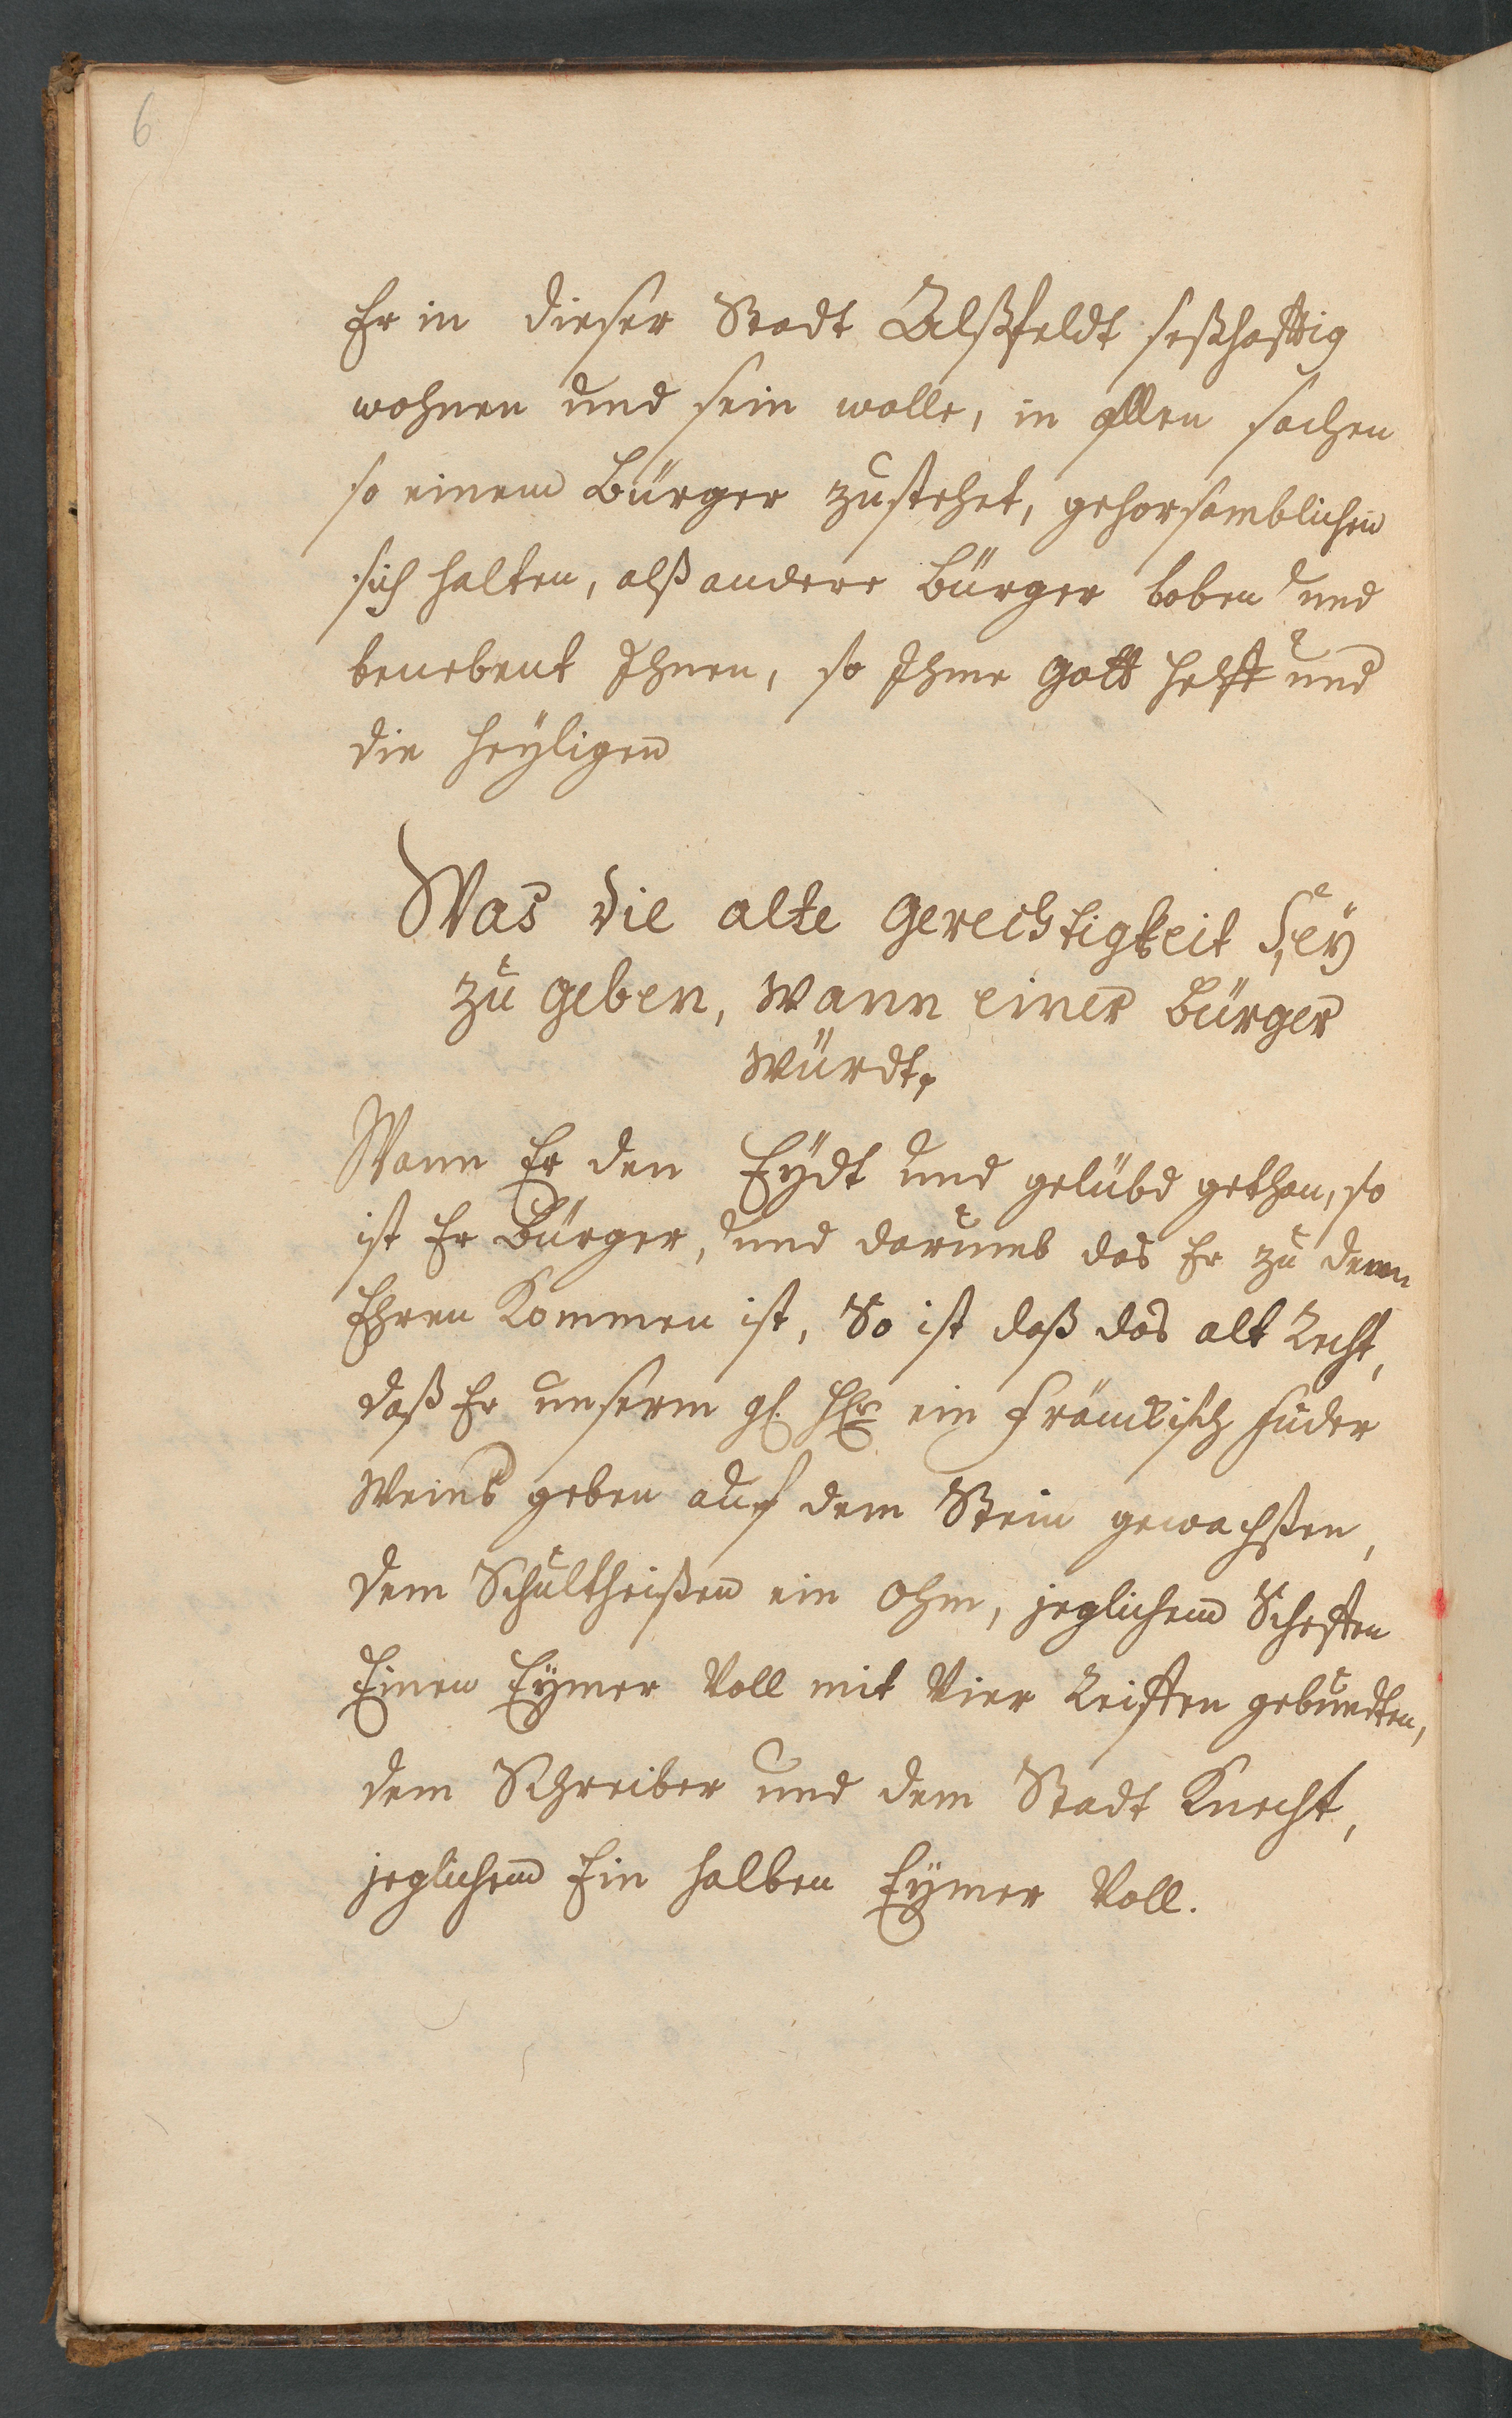 6
Er in dieser Stadt Alßfeldt seßhafftig
wohnen und sein wolle, in allen sachen
so einem Bürger zustehet, gehorsamblichen
sich halten, alß andere Bürger boben und
benebent Ihnen, so Ihme Gott helff und
die Heyligen
Was die alte Gerechtigkeit Sey
zu geben, wann einer Bürger
würdt,
Wann Er den Eydt und gelübd gethan, so
ist Er Bürger, und darumb das Er zu denen
Ehren Kommen ist, So ist daß das alt Recht,
daß Er unserm gl. Hhr ein Fränckisch Fuder
Weins geben auf dem Stein gewachsten,
dem Schultheißen ein Ohm, jeglichem Scheffen
Einen Eymer Voll mit Vier Reiffen gebundten,
dem Schreiber und dem Stadt Knecht,
jeglichem Ein halben Eymer Voll.